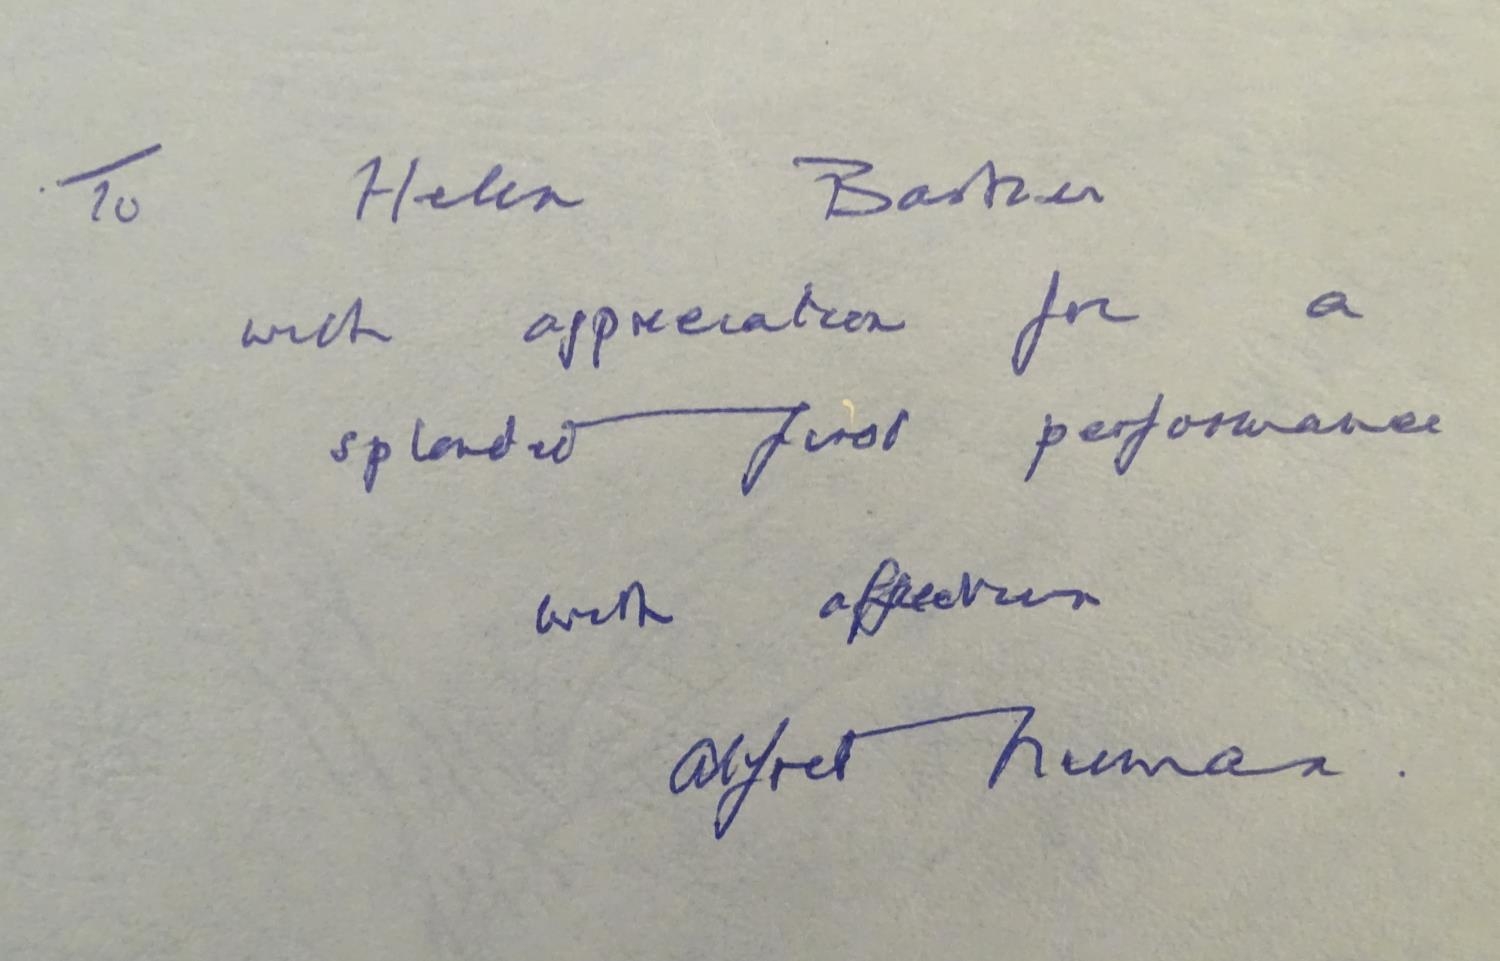 To Helen
with appreciation for a
splendid first performance
with affection
Alfred